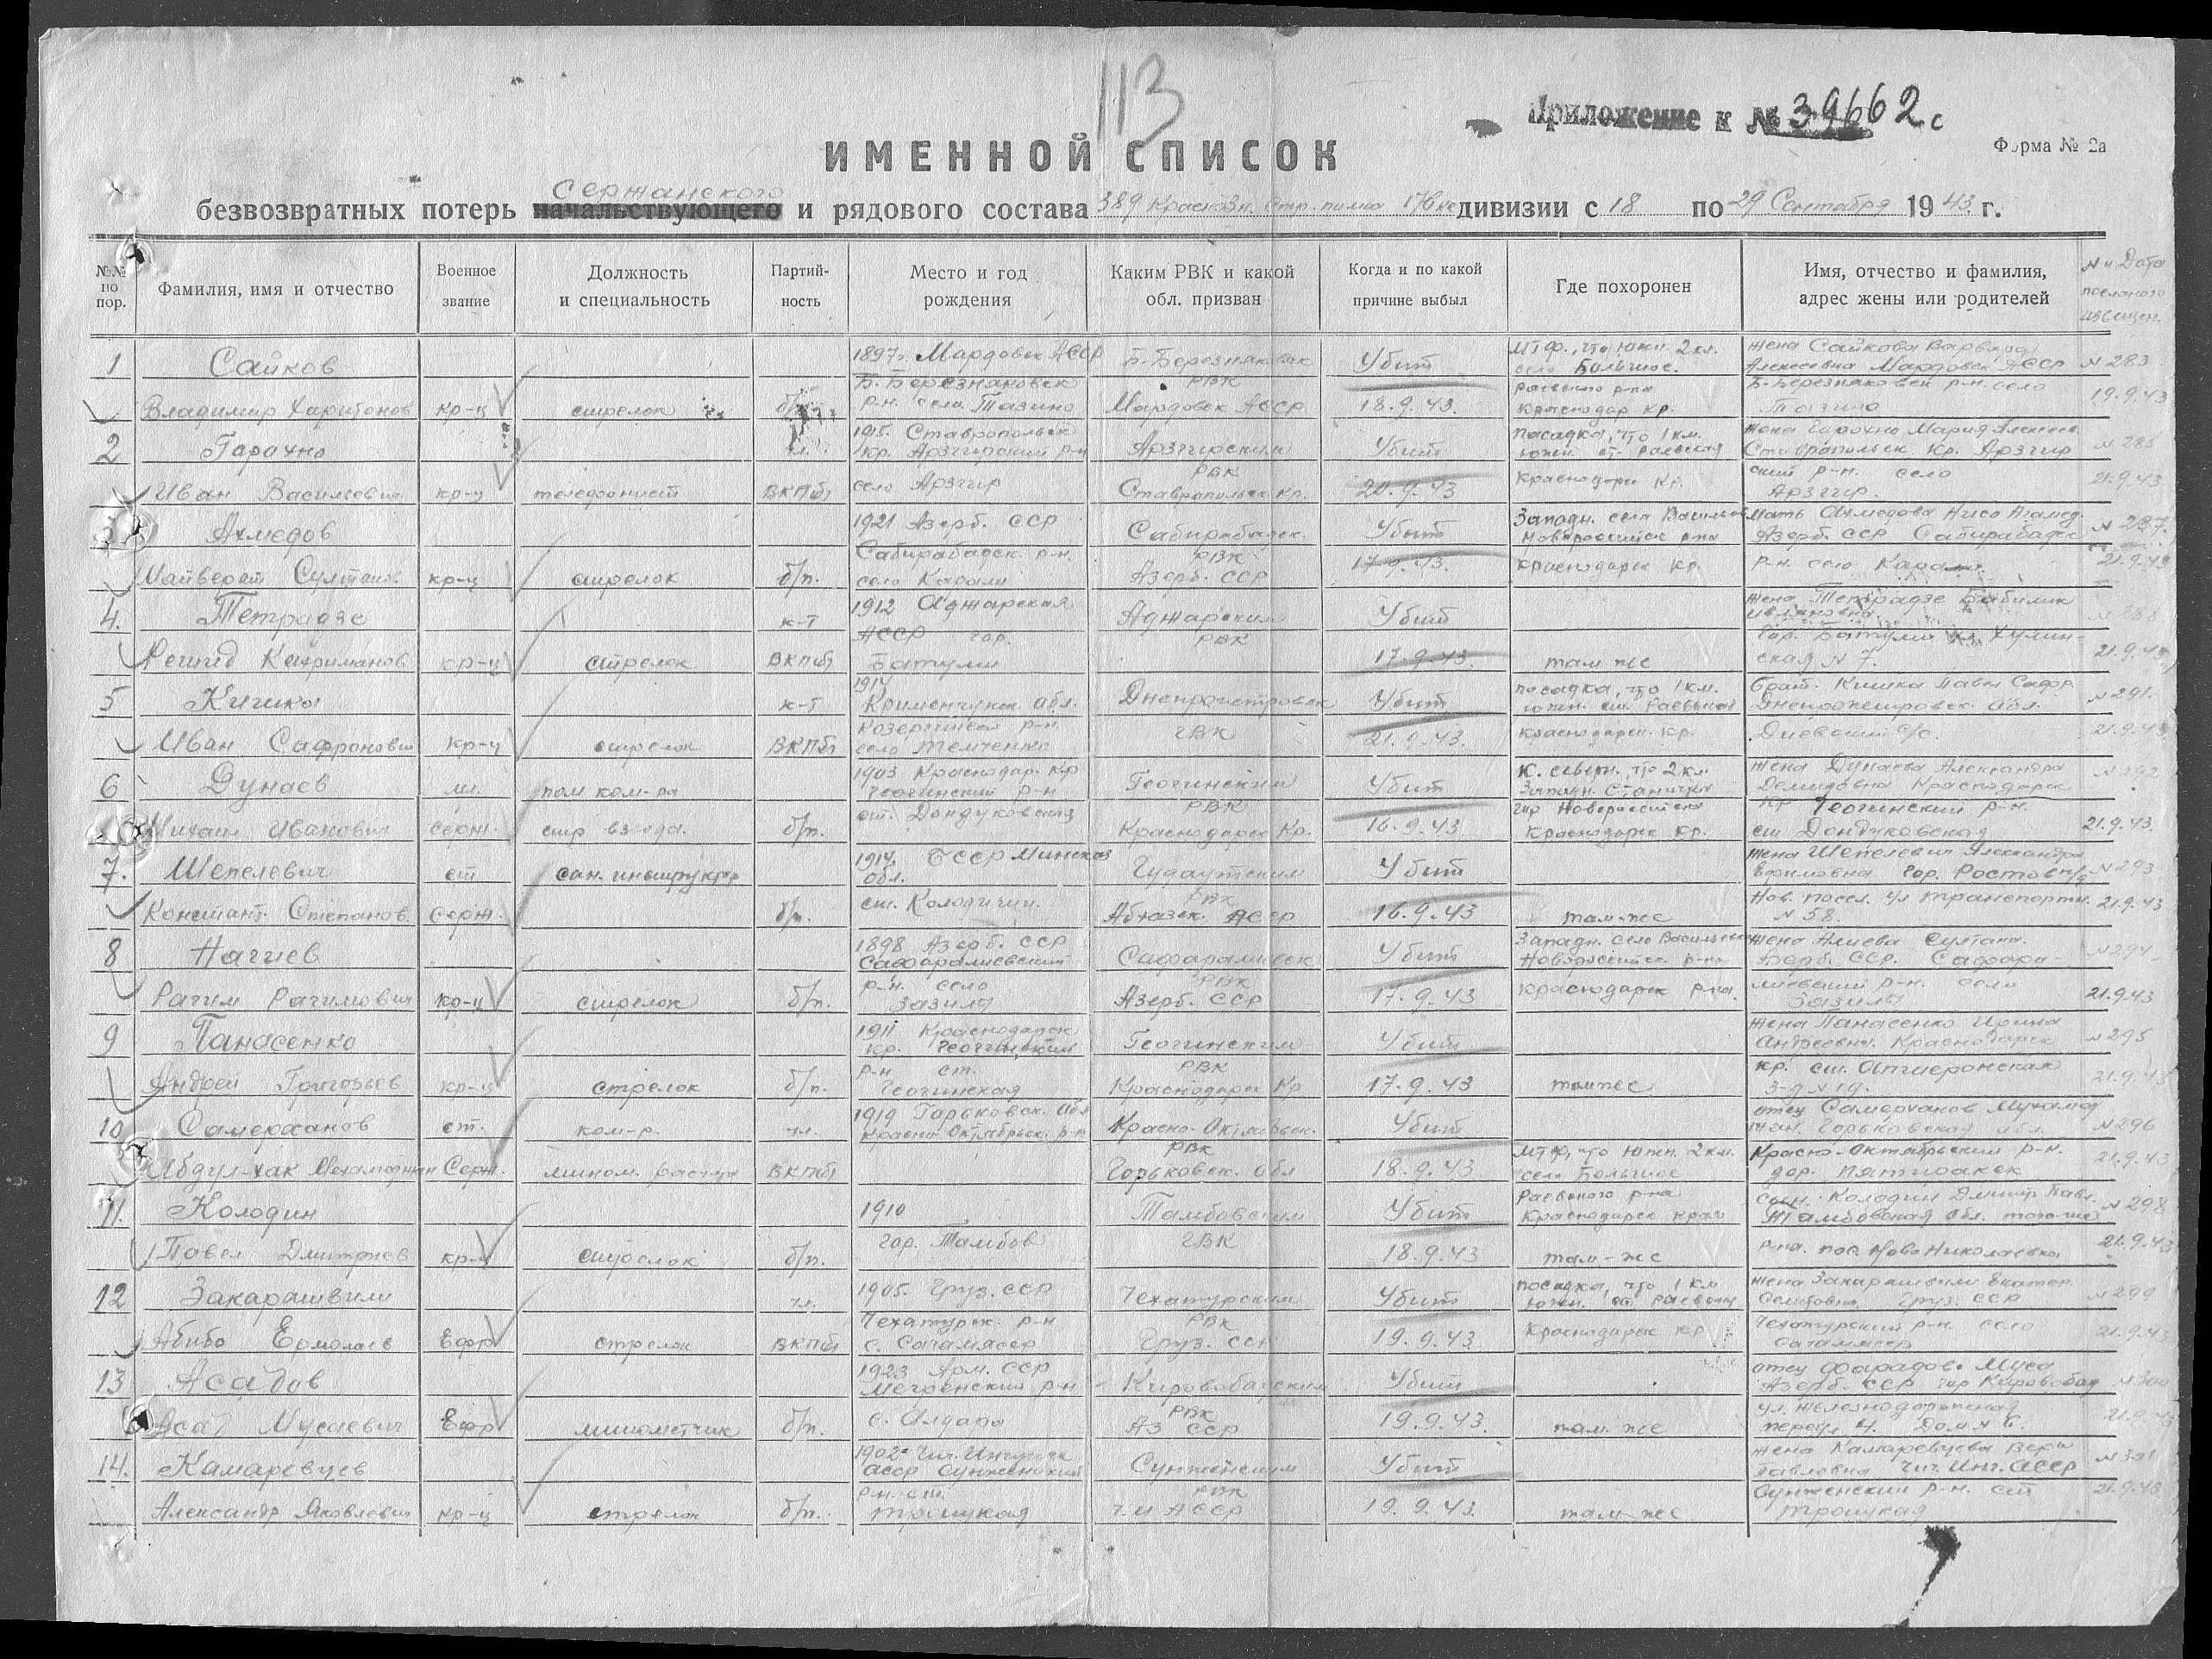 113
Приложение к № 39662с
Форма № 2а
ИМЕННОЙ СПИСОК
Сержанского
безвозвратных потерь начальствующего и рядового состава 389 Краснозн. Стр. полка 176 дивизии с 18 по 29 Сентября 1943 г.
№№ по пор. Фамилия, имя и отчество Военное звание Должность и специальность Партийность Место и год рождения Каким РВК и какой обл. призван Когда и по какой причине выбыл Где похоронен Имя, отчество и фамилия, адрес жены или родителей № и Дата посланого извещен.
1 Сайков 1897г. Мордовск АССР Б-Березняковск Убит МТФ, что южн. 2 км. жена Сайкова Варвара № 283
Б. Березняковск РВК село Большое. Алексеевна Мордовск АССР
Владимир Харитонов кр-ц стрелок р-н. село Тазино Мордовск АССР 18.9.43. Раевского р-на Краснодар Кр. Б-Березняковск р-н. село Тазино 19.9.43
2 Гарахно 1915. Ставропольск Арзгирским Убит посадка, что 1 км. жена Гарохно Мария Алексеев. № 285
кр. Арзгирский р-н РВК южн. ст. Раевская Ставропольск Кр. Арзгир
Иван Васильевич кр-ц телефонист ВКПб село Арзгир Ставропольск Кр. 20.9.43 Краснодарск Кр. ский р-н. село Арзгир. 21.9.43
3 Ахмедов 1921 Азерб. ССР Сабирабадск. Убит Западн. села Васильев мать Ахмедова № 287
Сабирабадск. р-н. РВК Новороссийск р-на Азерб. ССР Сабирабадск
кр-ц стрелок б/п. село Азерб. ССР 17.9.43. Краснодарск Кр. р-н. село 21.9.43
4. Тетрадзе к-т 1912 Аджарская Аджарским Убит жена Тетрадзе
АССР гор. РВК гор. Батуми
Кахриманов кр-ц стрелок ВКПб Батуми 17.9.43. там же ская № 7. 21.9.43
5 Кичка к-т 1914 Кременчугск обл. Днепропетровск Убит посадка, что 1 км. брат. Кишка Павел Сафр. № 291
южн. ст. Раевской Днепропетровск. обл.
Иван Сафронович кр-ц стрелок ВКПб р-н. село ГВК 21.9.43. Краснодарск. кр. с/с. 21.9.43
6 Дунаев мл. пом ком-ра 1903 Краснодар. Кр Геогинский Убит К. северн., что 2 км. жена Дунаева Александра № 292
Геогинский р-н РВК Западн. Станички Демидовна Краснодарск.
Михаил Иванович Серж. стр взвода. б/п. ст. Дондуковская Краснодарск Кр. 16.9.43 гор Новороссийска Краснодарск Кр. Кр Геогинский р-н. ст Дондуковская 21.9.43.
7. Шепелевич ст сан. инструктор 1914. БССР Минская обл. Гудаутским Убит жена Шепелевич Александра № 293
РВК Ефимовна гор. Ростов н/д
Константт. Степанов. Серж. б/п. ст. Абхазск. АССР 16.9.43 там-же Нов. посел. ул Транспортн. № 58. 21.9.43
8 Нагиев 1898 Азерб. ССР Сафаралиевск Убит Западн. село Васильевк жена Алиева Султана. № 294
Сафаралиевский РВК Новоросийск. р-на Азерб. ССР. Сафара-
Рагим Рагимович кр-ц стрелок б/п. р-н. село Зазила Азерб. ССР 17.9.43 Краснодарск р-на. лиевский р-н. село Зазила 21.9.43
9 Панасенко 1911 Краснодарск Геогинским Убит жена Панасенко Ирина № 295
кр. Геогинский РВК Андреевна. Краснодарск
Андрей Григорьев кр-ц стрелок б/п. р-н ст. Геогинская Краснодарск Кр 17.9.43 там же кр. ст. Апшеронская 3-д № 19. 21.9.43
10 Самерханов ст. ком-р. чл. 1919 Горьковск. обл Красно-Октябрьск. Убит отец Самерханов Мухамед
Красно Октябрьск. р-н РВК МТФ, что южн. 2 км. жан. Горьковская обл. № 296
Абдул-хак Мехамеджан Серж. мином. расчета ВКПб Горьковск. обл 18.9.43 село Большое Красно-Октябрьский р-н. дер. 21.9.43
11. Колодин 1910 Тамбовским Убит Раевского р-на Краснодарск край сын. Колодин Дмитр Павл. № 298
гор. Тамбов ГВК Тамбовская обл. того-же
Павел Дмитриев кр-ц стрелок б/п. 18.9.43 там-же р-на. пос Ново Николаевка 21.9.43
12 Закарашвили чл. 1905. Груз. ССР Чехатурским Убит посадка, что 1 км жена Закарашвили Екатер. № 299
Чехатурск. р-н РВК южн. ст Раевская Груз. ССР
Абибо Ермолаев Ефр стрелок ВКПб с. Груз. ССР 19.9.43. Краснодарск кр Чехатурский р-н. село 21.9.43
13 Асадов 1923 Арм. ССР Кировобадским Убит отец Фарадов Муса № 300
Мегренский р-н РВК Азерб. ССР гор Кировобад
Асад Мусаевич Ефр минометчик б/п. с. Алдара Аз ССР 19.9.43 там же ул. Железнодорожная переул. 4. Дом № 6. 21.9.43
14. Камаревцев 1902г Чич. Ингушск Сунженским Убит жена Камаревцева Вера № 301
АССР Сунженский РВК Павловна Чич. Инг. АССР
Александр Яковлевич кр-ц стрелок б/п. р-н. ст. Троицкая Ч.И АССР 19.9.43. там-же Сунженский р-н. ст Троицкая 21.9.43